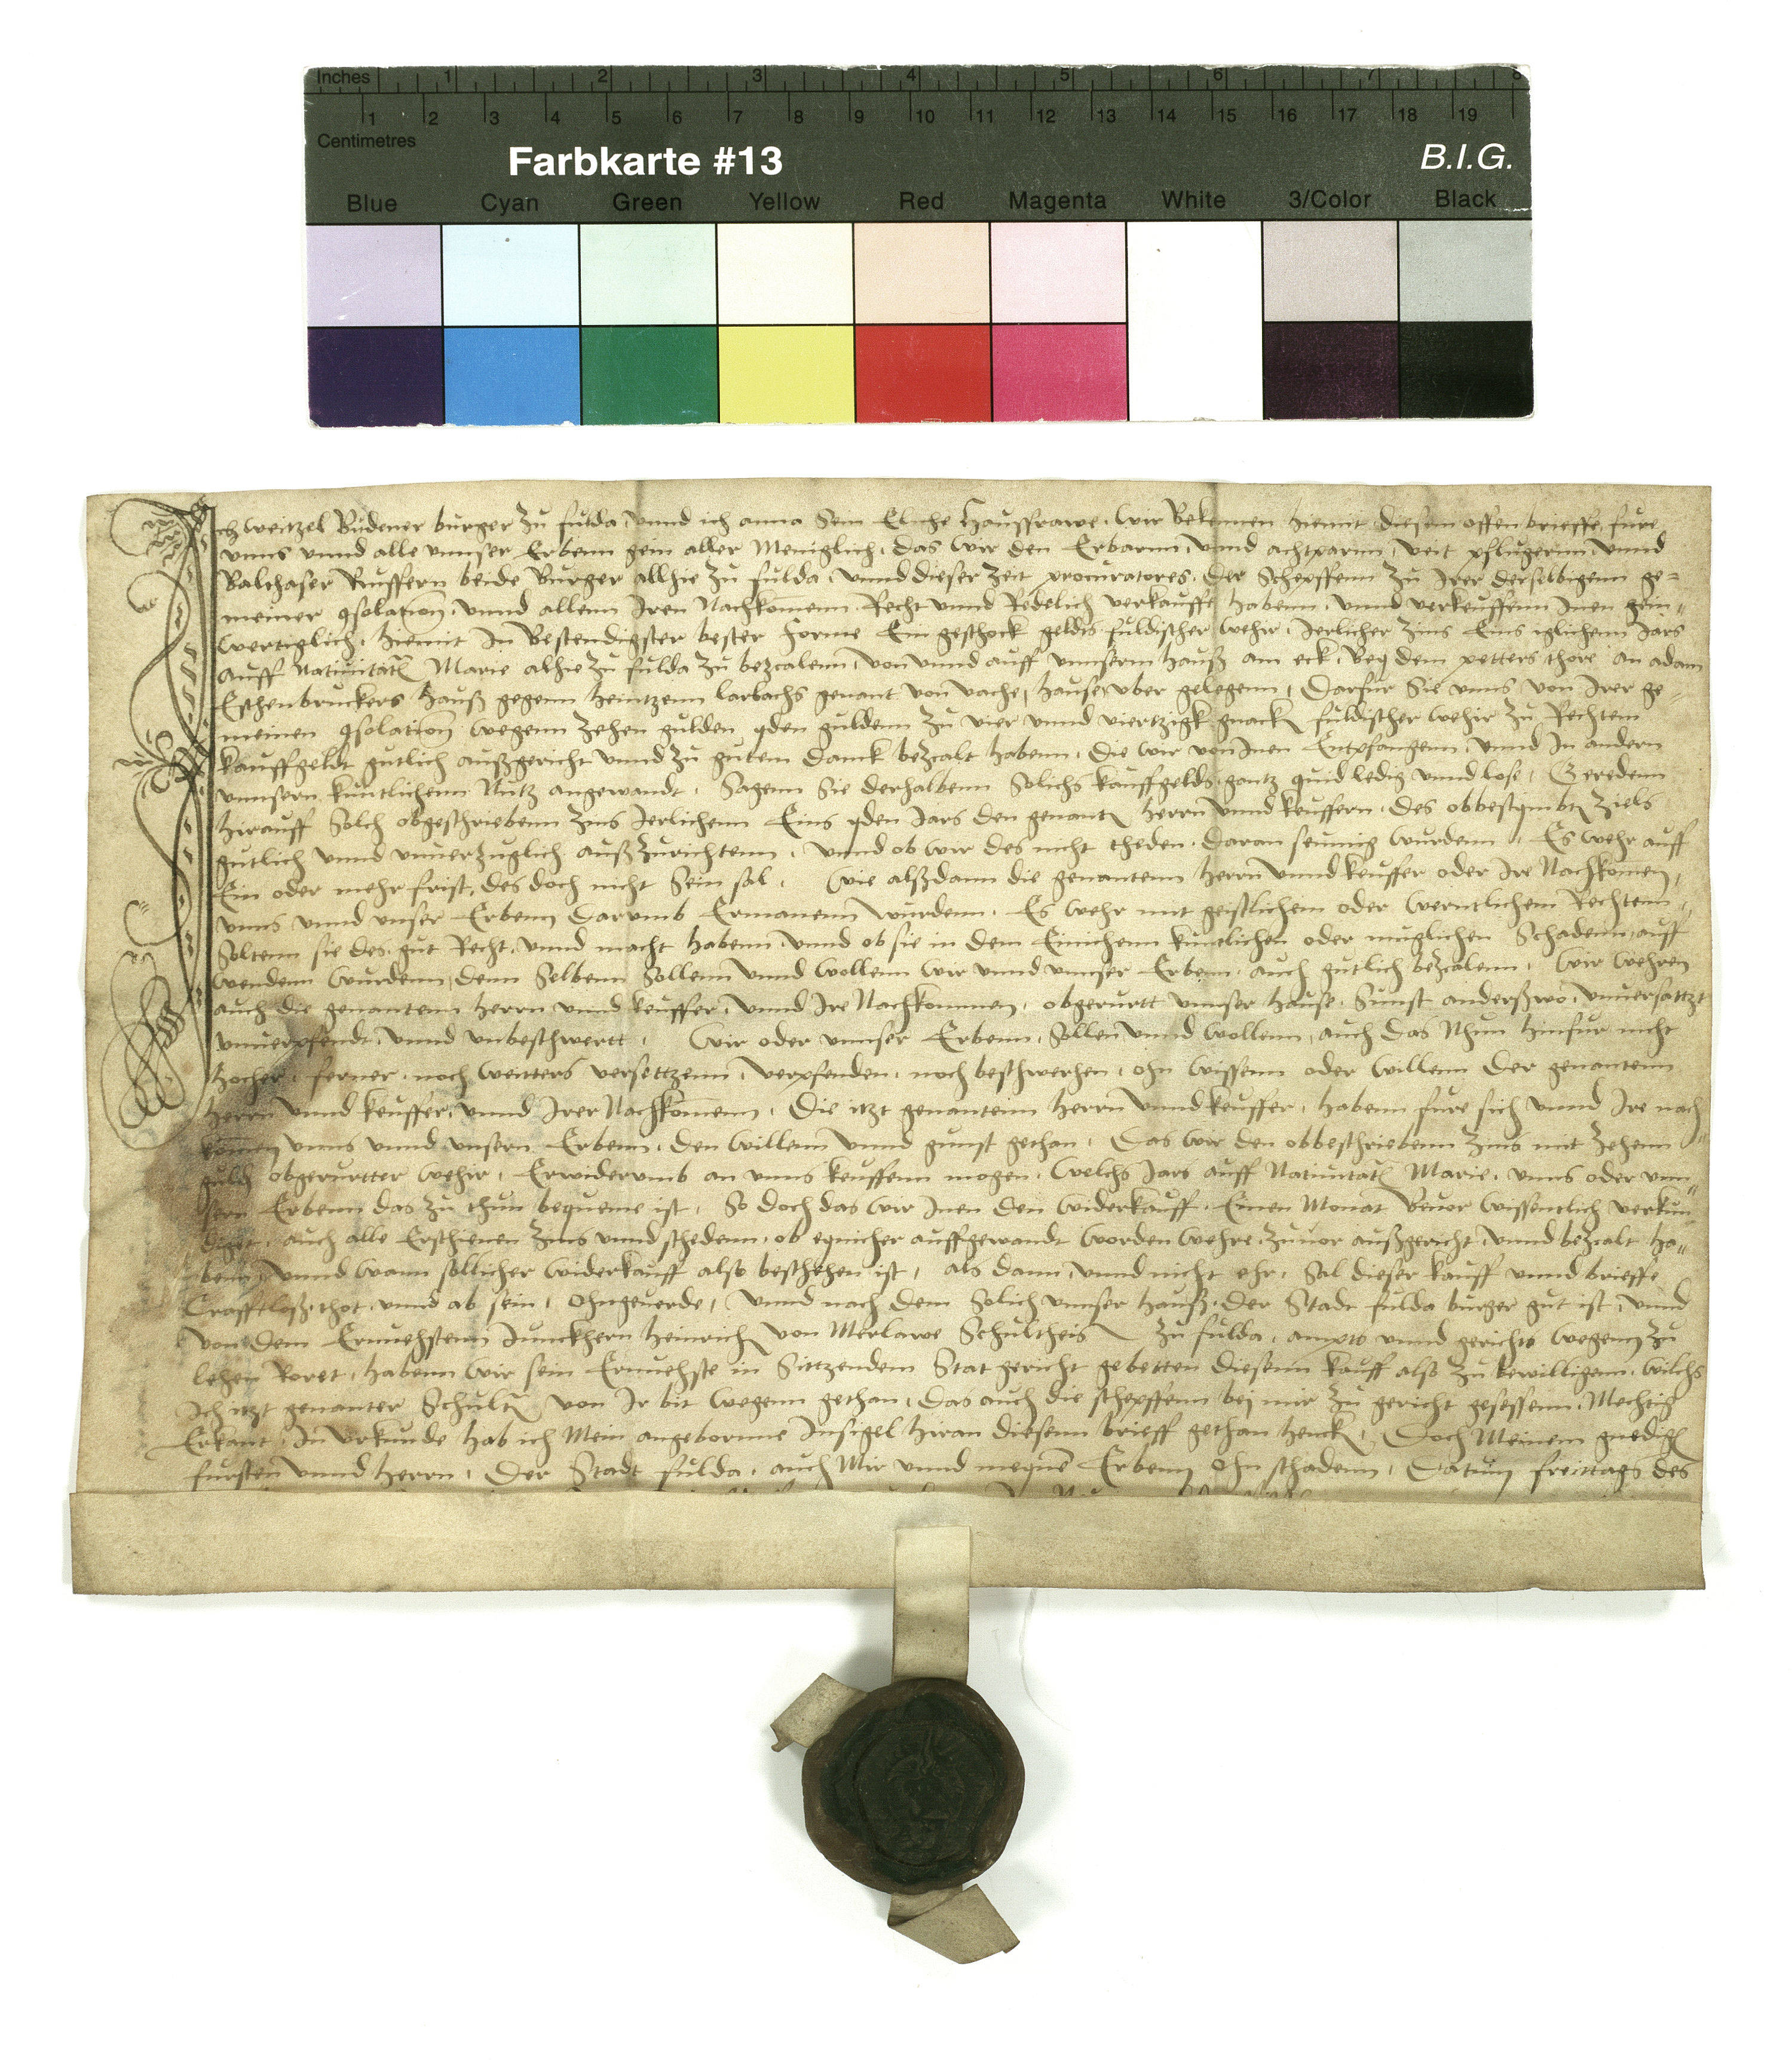 Inches 1 2 3 4 5 6 7 8
1 2 3 4 5 6 7 8 9 10 11 12 13 14 15 16 17 18 19
Centimetres
Farbkarte #13 B.I.G.
Blue Cyan Green Yellow Red Magenta White 3/Color Black
Ich Weitzel Budener burger zu fulda, vnnd ich anna Sein Eliche haussfrawe, Wir Bekennen hiemit diesem offen brieffe, fure
vnns vnnd alle vnnser Erbenn gein aller Meniglich, das wir den Erbarnn, vnnd achtparnn, veit pflugerinn, vnnd
Balthaser Ruffern beide Burger allhie zu fulda, vnnd dieser zeit procuratores, der Schepffenn zu Irer derselbigenn ge-
meiner 9solation, vnnd allenn Iren Nachkomenn, Recht vnnd Redelich verkaufft habenn, vnnd verkeuffenn Inen gein-
wertiglich, hiemit In Bestendigster bester Forme Ein geschock geldts fuldischer wehr, Ierlicher zins Eins iglichenn Iars
auff Natiuitatis Marie alhie zu fulda zu bezcalenn, von vnnd auff vnnserm hauß am eck, bey dem petters thore an adam
Eschenbruckers hauß gegenn heintzenn larbachs genant von vache, hause vber gelegenn, Darfur Sie vnns von Irer ge-
meinen 9solation wegenn zehen gulden, yden guldenn zu vier vnnd viertzigk gnack fuldischer wehir zu Rechtem
kauffgeldt gutlich außgericht vnnd zu gutem danck bezcalt habenn, die wir von Inen Entpfangenn, vnnd In andern
vnnsern kuntlichenn Nutz angewandt, Sagenn Sie derhalbenn Solichs kauffgelds gantz quid ledig vnnd lose, Geredenn
hirauff Solch obgeschriebenn zins Ierlichenn Eins yden Iars den genanten herrn vnnd keuffern, des obbestymbten ziels
gutlich vnnd vnuerzuglich außzurichtenn, vnnd ob wir des nicht theden, daran seumig wurdenn, Es wehr auff
Ein oder mehr frist, des doch nicht Sein sol, Wie alßdann die genantenn herrn vnnd keuffer oder Ire Nachkomen,
vnns vnnd vnser Erbenn Darumb Ermanenn wurdenn, Es wehr mit geistlichem oder werntlichem Rechtenn,
Soltenn sie des, gut Recht, vnnd macht habenn, vnnd ob sie in dem Einichenn kuntlichen oder muglichen Schadenn, auff
wendenn wurdenn, denn Selbenn Sollenn vnnd wollenn wir vnnd vnnser Erbenn, auch gutlich bezcalenn, Wir wehren
auch die genantenn herrn vnnd keuffer, vnnd Ire Nachkommen, obgerurtt vnnser hause, Sunst anderßwo, vnuersattzt
vnuerpfendt, vnnd vnbeschwertt, Wir oder vnnser Erbenn, Sollen vnnd wollenn, auch das Nhun hinfur nicht
hocher, ferner, noch weitters versettzenn, verpfenden, noch beschwerhen, ohn wissenn oder willenn der genantenn
herrn vnnd keuffer, vnnd Irer Nachkomenn, Die itzt genantenn herrn vnnd keuffer, habenn fure sich vnnd Ire nach
komen vnns vnnd vnsern Erbenn, den willenn vnnd gunst gethan, Das wir den obbeschriebenn zins mit zehenn
gulden obgerurtter wehir, Erwiderumb an vnns keuffenn mogen, welchs Iars auff Natiuitatis Marie, vnns oder vnn-
sern Erbenn das zu thun bequeme ist, So doch das wir Inen den widerkauff, Einen Monat beuor wissentlich verkun-
diget, auch alle Erschienen zins vnnd schedenn, ob eynicher auffgewandt worden wehre, zuuor außgericht, vnnd bezcalt ha-
benn, vnnd wann sollicher widerkauff also beschehen ist, als dann, vnnd nicht ehr, Sal dieser kauff vnnd brieffe
Crafftloß, thot, vnnd ab sein, Ohngeuerde, vnnd nach dem Solich vnnser hauß, der Stadt fulda burger gut ist, vnnd
von dem Ernuehstenn Junckhern heinrich von Merlawe Schultheis zu fulda, ampts vnnd gerichts wegenn zu
lehen Roret, habenn wir sein Ernuehste in Sittzendem Stat gericht gebetten diesenn kauff also zu bewilligenn, wilchs
Ich itzt genanter Schulteis von Ir bit wegenn gethan, Das auch die schepffenn bei mir zu gericht gesessenn, Mechtig
Erkant, In vrkunde hab ich Mein angebornne Insigel hiran diesenn brieff gethan hencken, Doch Meinem gnedigen
fursten vnnd herrn, Der Stadt fulda, auch Mir vnnd meynen Erbenn Ohn schadenn, Datum freittags des